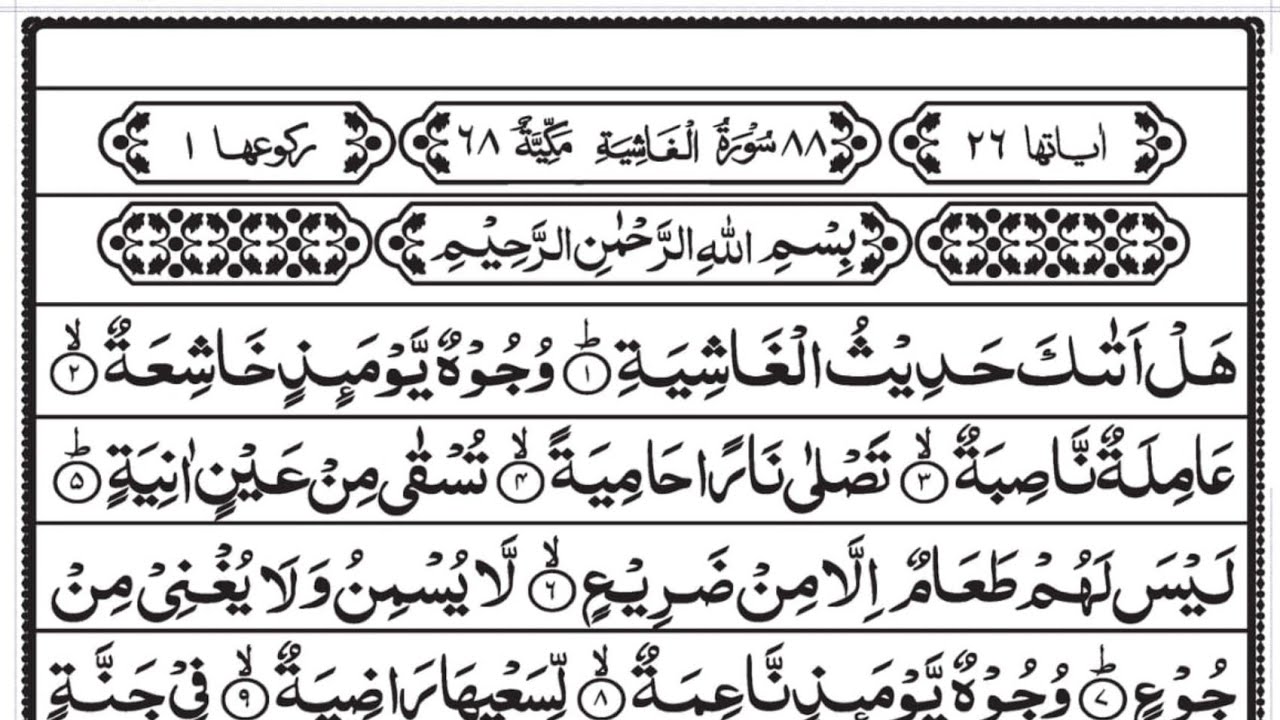 اٰیاتها ٢٦ ٨٨ سُوْرَةُ الْغَاشِيَةِ مَكِّيَّةٌ ٦٨ ركوعها ١
بِسْمِ اللهِ الرَّحْمٰنِ الرَّحِيْمِ
هَلْ اَتٰىكَ حَدِيْثُ الْغَاشِيَةِ ؕ﴿۱﴾ وُجُوْهٌ يَّوْمَىِٕذٍ خَاشِعَةٌ ۙ﴿۲﴾
عَامِلَةٌ نَّاصِبَةٌ ۙ﴿۳﴾ تَصْلٰى نَارًا حَامِيَةً ۙ﴿۴﴾ تُسْقٰى مِنْ عَيْنٍ اٰنِيَةٍ ؕ﴿۵﴾
لَيْسَ لَهُمْ طَعَامٌ اِلَّا مِنْ ضَرِيْعٍ ۙ﴿۶﴾ لَّا يُسْمِنُ وَلَا يُغْنِىْ مِنْ
جُوْعٍ ؕ﴿۷﴾ وُجُوْهٌ يَّوْمَىِٕذٍ نَّاعِمَةٌ ۙ﴿۸﴾ لِّسَعْيِهَا رَاضِيَةٌ ۙ﴿۹﴾ فِىْ جَنَّةٍ